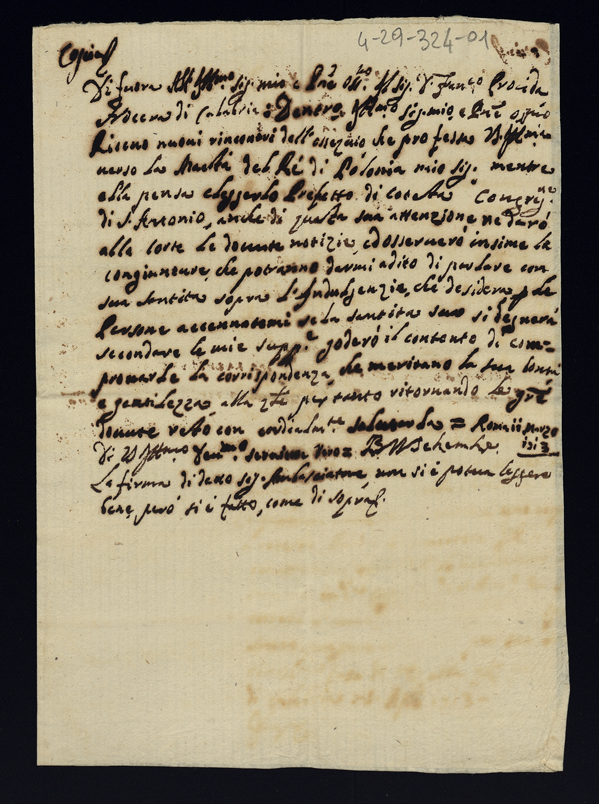 4-29-324-01
Copia
Di fuora All' Ill.mo sig. mio e P.ne Oss.mo Il sig. D. Fran.co Procida
di Calabria = Dentro = Ill.mo sig. mio, e P.ne oss.mo
Ricevo nuovi rincontri dell'ossequio, che professa V. S. Ill.ma
verso la Maestà del Ré di Polonia mio sig. mentre
ella pensa eleggerlo Prefetto di cotesta Congreg.ne
di S. Antonio, anche di questa sua attenzione ne daró
alla Corte le dovute notizie, ed osserveró insieme le
congiunture, che potranno darmi adito di parlare con
sua santità sopra l'Indulgenzie, che desidera p le
Persone accennatemi se la santità sua si degnerà
secondare le mie supp.e goderó il contento di com-
provarle la corrispondenza, che meritano la sua bontà
e gentilezza, alla q.le per tanto ritornando le gr.e
dovute resto con salutarla = Roma 11 Marzo
Di V. S. Ill.ma
La firma di detto sig. Ambasciatore non si é potuta leggere
bene, peró si é fatto, come di sopra.